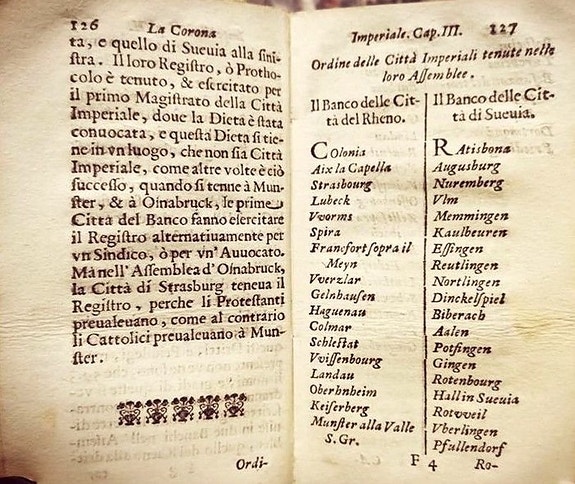 126 La Corona
ta, e quello di Sueuia alla sini-
stra. Il loro Registro, ò Protho-
colo è tenuto, & esercitato per
il primo Magistrato della Città
Imperiale, doue la Dieta è stata
conuocata, e questa Dieta si tie-
ne in vn luogo, che non sia Città
Imperiale, come altre volte è ciò
successo, quando si tenne à Mun-
ster, & à Osnabruck, le prime
Città del Banco fanno esercitare
il Registro alternatiuamente per
vn Sindico, ò per vn' Auuocato.
Mà nell' Assemblea d' Osnabruck,
la Città di Strasburg teneua il
Registro, perche li Protestanti
preualeuano, come al contrario
li Cattolici preualeuano à Mun-
ster.
Ordi-
Imperiale. Cap. III. 127
Ordine delle Città Imperiali tenute nelle
loro Assemblee.
Il Banco delle Cit-
tà del Rheno.
Colonia
Aix la Capella
Strasbourg
Lubeck
Vvorms
Spira
Francfort sopra il
Meyn
Vverzlar
Gelnhausen
Haguenau
Colmar
Schlestat
Vvissenbourg
Landau
Oberhnheim
Keiserberg
Munster alla Valle
S. Gr.
Il Banco delle Cit-
tà di Sueuia.
Ratisbona
Augusburg
Nuremberg
Vlm
Memmingen
Kaulbeuren
Essingen
Reutlingen
Nortlingen
Dinckelspiel
Biberach
Aalen
Potfingen
Gingen
Rotenbourg
Hall in Sueuia
Rotvveil
Vberlingen
Pfullendorf
F 4 Ro-